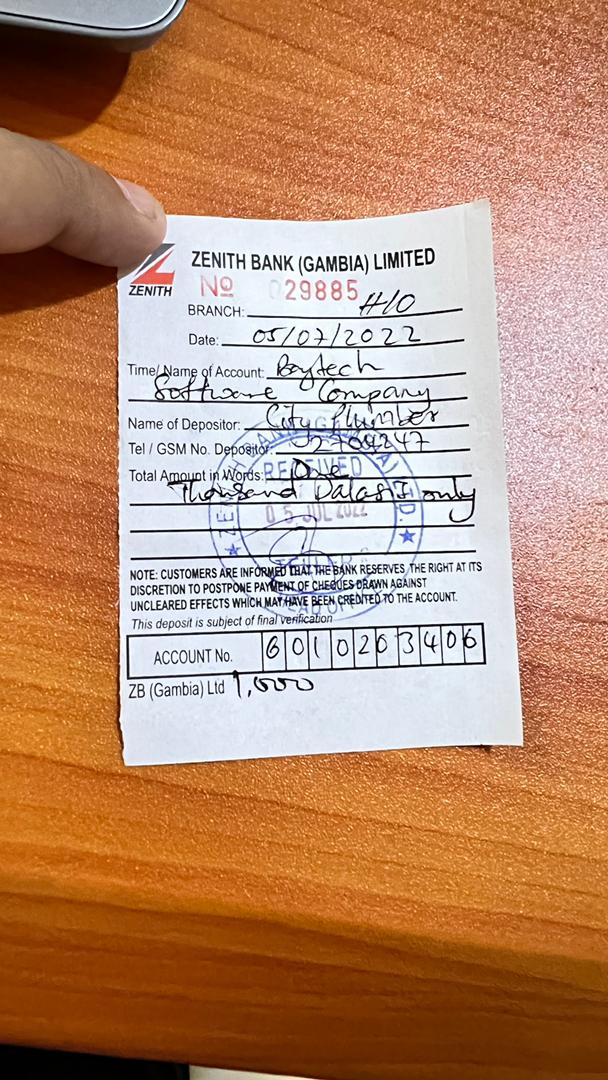 ZENITH BANK (GAMBIA) LIMITED
ZENITH
No 029885
BRANCH: H/O
Date: 05/07/2022
Time/Name of Account: Baytech
Software Company
Name of Depositor: City Plumber
Tel / GSM No. Depositor: 2704247
Total Amount in Words: One
Thousand Dalasi only
RECEIVED
05 JUL 2022
NOTE: CUSTOMERS ARE INFORMED THAT THE BANK RESERVES, THE RIGHT AT ITS
DISCRETION TO POSTPONE PAYMENT OF CHEQUES DRAWN AGAINST
UNCLEARED EFFECTS WHICH MAY HAVE BEEN CREDITED TO THE ACCOUNT.
This deposit is subject of final verification
ACCOUNT No. 6010203406
ZB (Gambia) Ltd 1,000